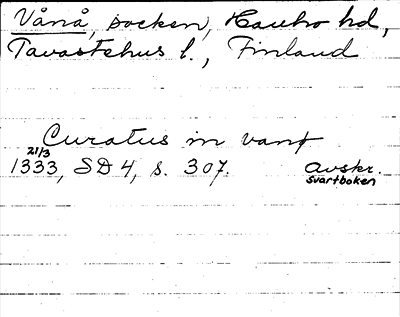 Vånå, socken, Hauho hd,
Tavastehus l., Finland
Curatus in vanø
21/3
1333, SD 4, s. 307. avskr.
Svartboken